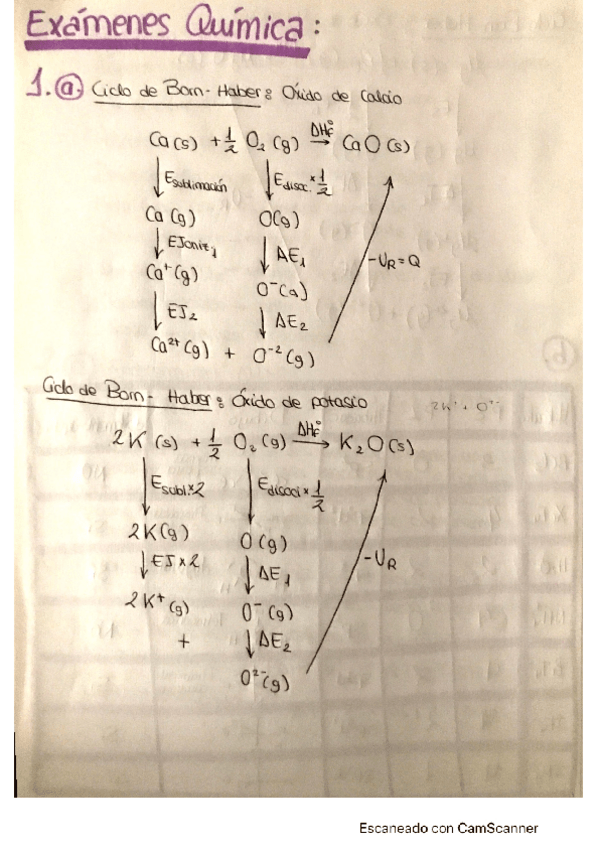 Exámenes Química:
1. a. Ciclo de Born-Haber: Óxido de Calcio
Ca(s) + 1/2 O₂(g) ΔHf° → CaO(s)
↓ Esublimación ↓ Edisoc. x 1/2
Ca(g) O(g)
↓ EIoniz₁ ↓ AE₁ -UR = Q
Ca⁺(g) O⁻(g)
↓ EI₂ ↓ ΔE₂
Ca²⁺(g) + O⁻²(g)
Ciclo de Born-Haber: Óxido de potasio 2K⁺ + O²⁻
2K(s) + 1/2 O₂(g) ΔHf° → K₂O(s)
↓ Esubl. x2 ↓ Edisoci x 1/2
2K(g) O(g)
↓ EI x2 ↓ ΔE₁ -UR
2K⁺(g) O⁻(g)
+ ↓ ΔE₂
O²⁻(g)
Escaneado con CamScanner